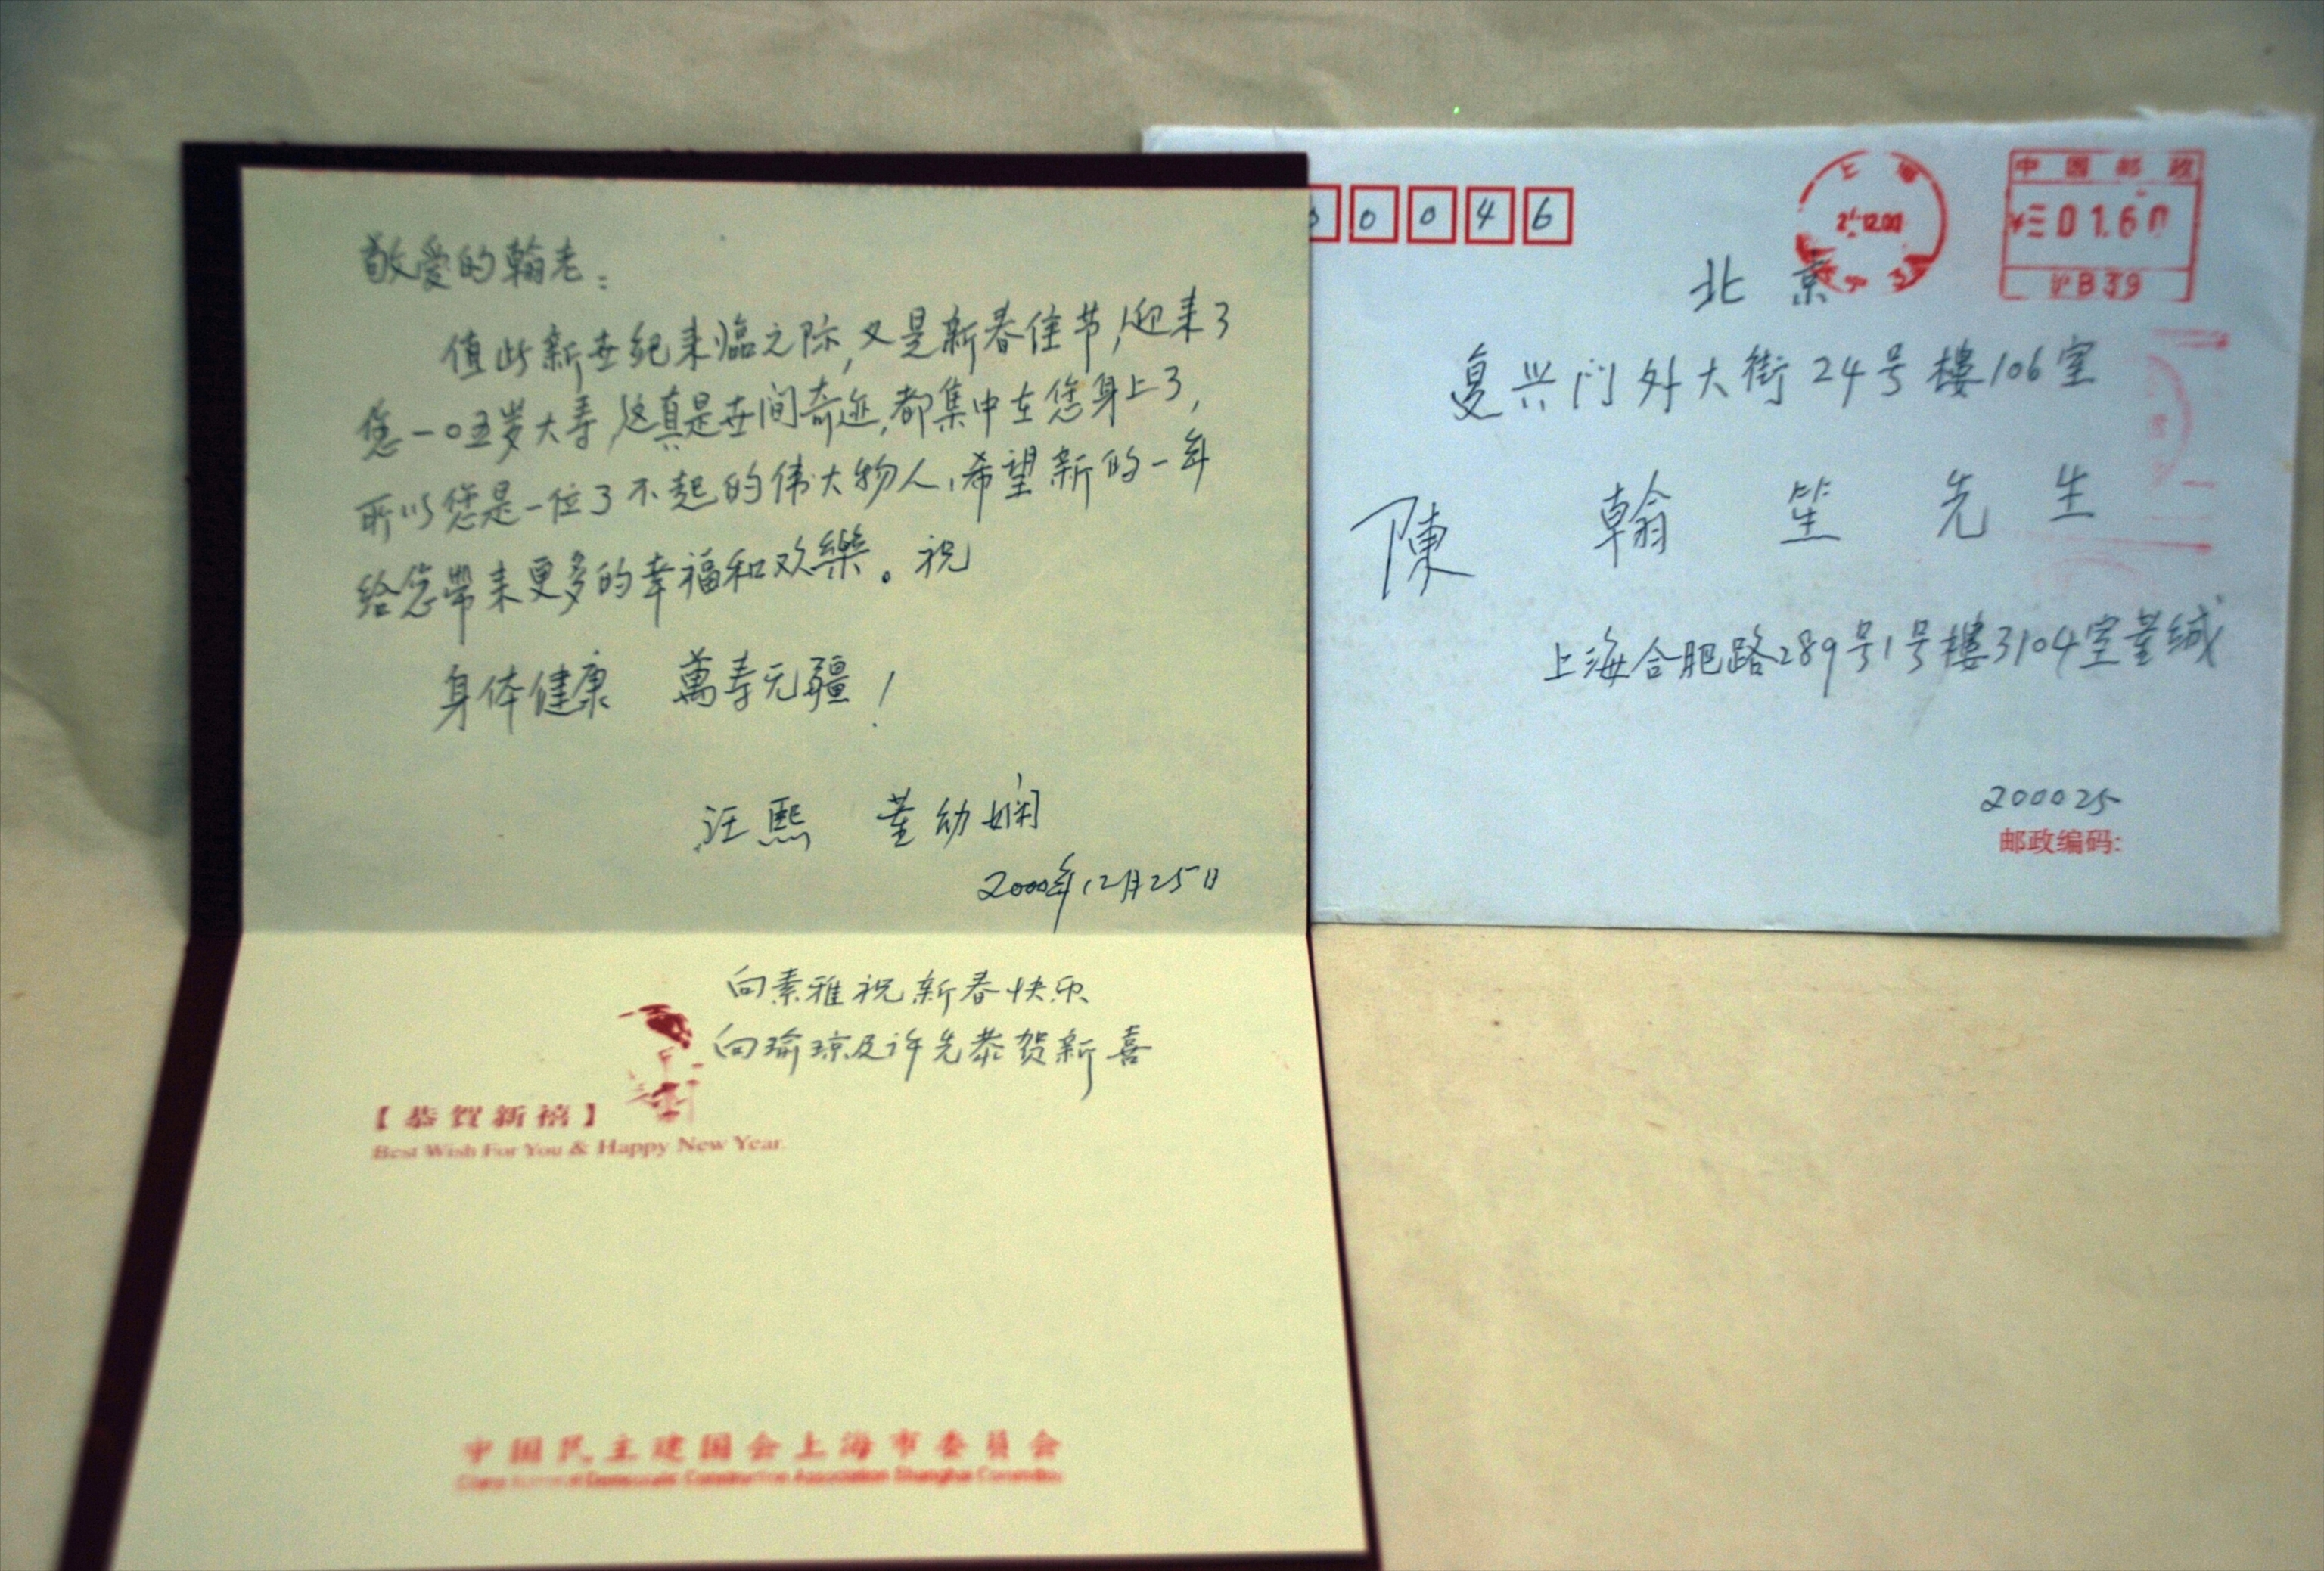 敬爱的翰老：
值此新世纪来临之际，又是新春佳节，迎来了
您一〇五岁大寿，这真是世间奇迹，都集中在您身上了，
所以您是一位了不起的伟大物人，希望新的一年
给您帶来更多的幸福和欢樂。祝
身体健康 萬寿无疆！
汪熙 董幼娴
2000年12月25日
向素雅祝新春快乐
向瑜琼及许先恭贺新喜
【恭賀新禧】
Best Wish For You & Happy New Year
中国民主建国会上海市委员会
Democratic Construction Association Shanghai
0 0 4 6
上海
12.00
中国邮政
01.60
沪B39
北京
复兴门外大街24号樓106室
陳翰笙先生
上海合肥路289号1号樓3104室董缄
200025
邮政编码: